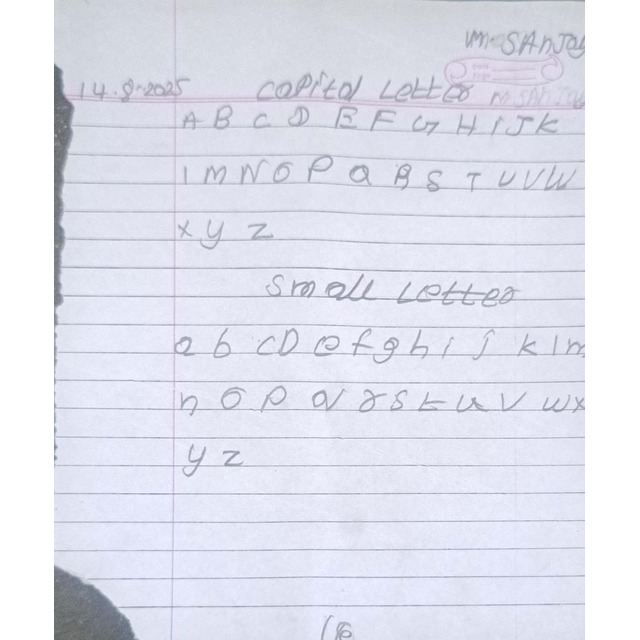 m. SANJAY
14.8.2025 Capital Letter
A B C D E F G H I J K
l M N O P Q R S T U V W
x y z
Small Letter
a b c D e f g h i j k l m
n O P q r s t u v w x
y z